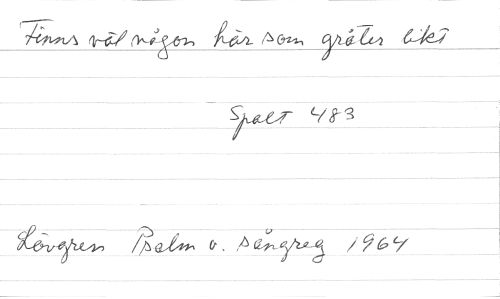 Finns väl någon här som gråter likt
Spalt 483
Lövgren Psalm o. sångreg 1964